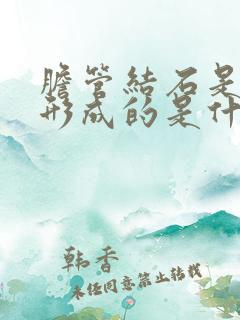 膽管結石是
形成的是什
韩香
未经同意禁止转载